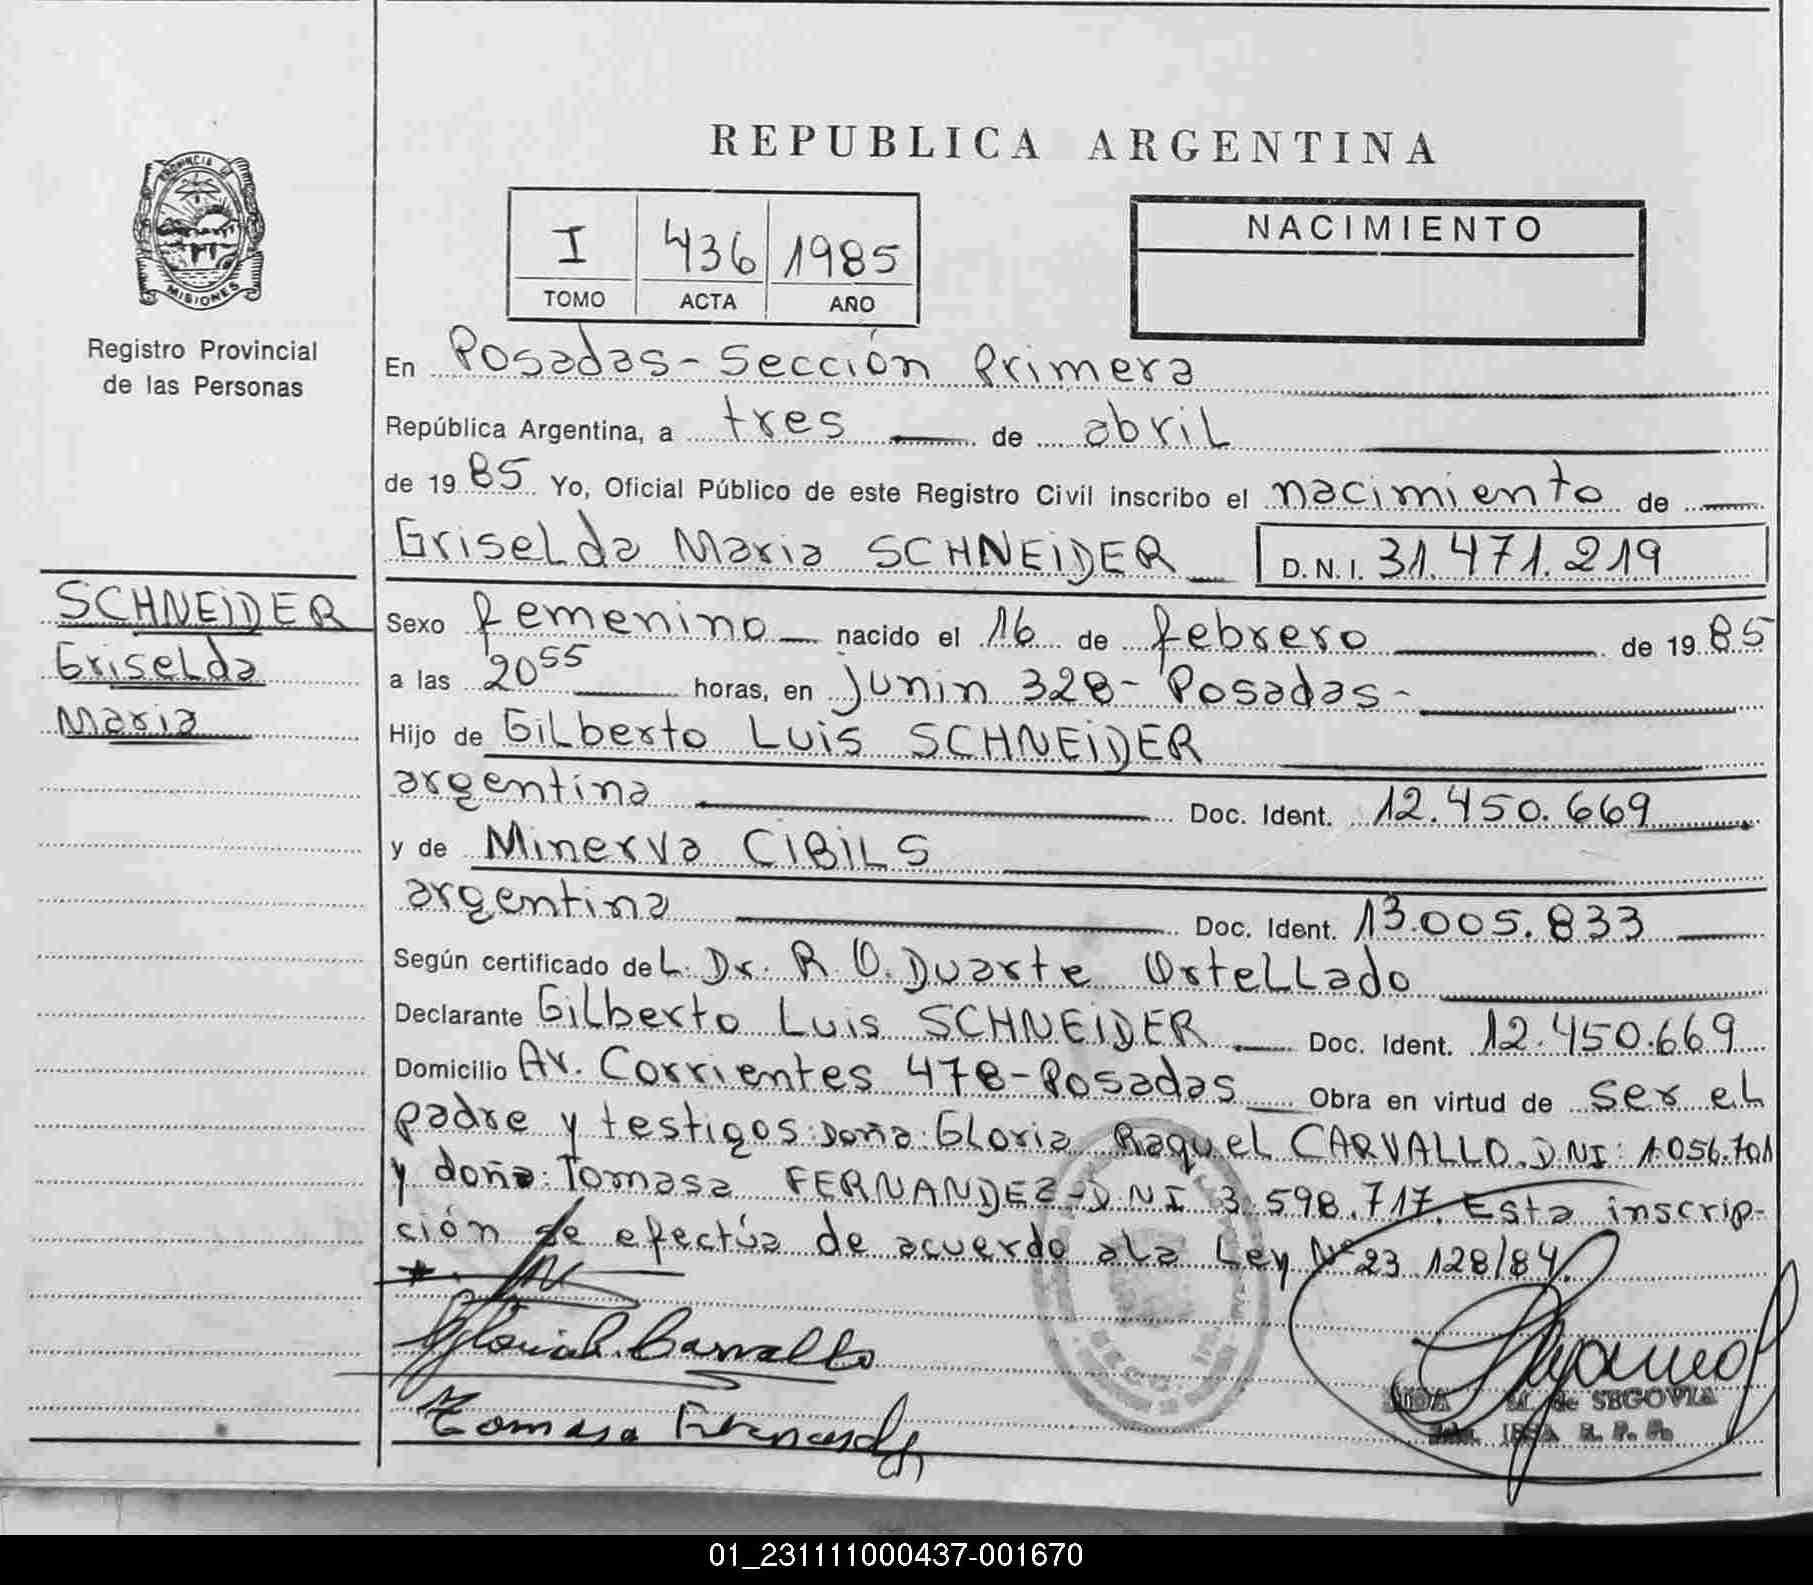 REPUBLICA ARGENTINA
PROVINCIA DE
MISIONES
Registro Provincial
de las Personas
I 436 1985
TOMO ACTA AÑO
NACIMIENTO
En Posadas - Sección Primera
República Argentina, a tres de abril
de 19 85 Yo, Oficial Público de este Registro Civil inscribo el nacimiento de
Griselda Maria SCHNEIDER D.N.I. 31.471.219
SCHNEIDER
Griselda
Maria
Sexo femenino nacido el 16 de febrero de 19 85
a las 20 55 horas, en Junin 328 - Posadas -
Hijo de Gilberto Luis SCHNEIDER
argentina Doc. Ident. 12.450.669
y de Minerva CIBILS
argentina Doc. Ident. 13.005.833
Según certificado del Dr. R. O. Duarte Ortellado
Declarante Gilberto Luis SCHNEIDER Doc. Ident. 12.450.669
Domicilio Av. Corrientes 478 - Posadas Obra en virtud de ser el
padre y testigos: Doña: Gloria Raquel CARVALLO. DNI: 1.056.701
y doña: Tomasa FERNANDEZ - DNI 3.598.717. Esta inscrip-
ción se efectúa de acuerdo a la Ley Nº 23.128/84.
Gloria R. Carvallo
Tomasa Fernandez
M. de SEGOVIA
R. P. P.
01_231111000437-001670